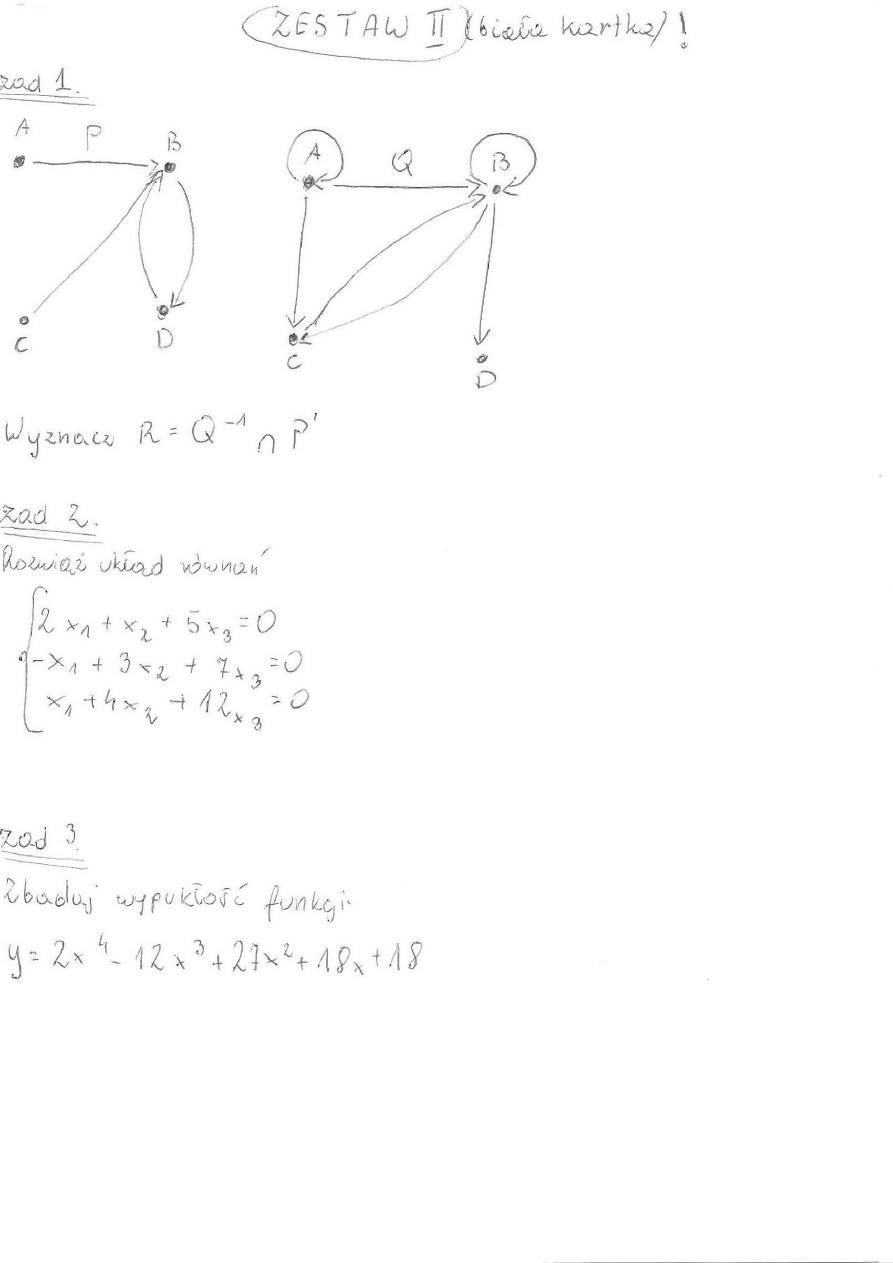 ZESTAW II (biała kartka) !
zad 1.
A P B
C D
A Q B
C D
Wyznacz R = Q⁻¹ ∩ P'
zad 2.
Rozwiąż układ równań
2x₁ + x₂ + 5x₃ = 0
-x₁ + 3x₂ + 7x₃ = 0
x₁ + 4x₂ + 12x₃ = 0
zad 3.
Zbaduj wypukłość funkcji
y = 2x⁴ - 12x³ + 27x² + 18x + 18